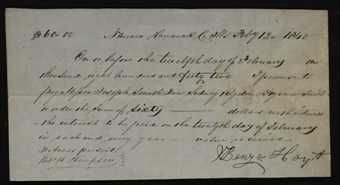 $60.00 Nauvoo Hancock Co Ills Feby 12th 1840
On or before the twelfth day of February one
thousand eight hundred and forty two I promise to
pay Joseph Smith Jun Sidney Rigdon & Hyrum Smith
or order the sum of Sixty dollars with interest
the interest to be paid on the twelfth day of February
in each and every year value received
Witness present
Robt B Thompson
Hoyt